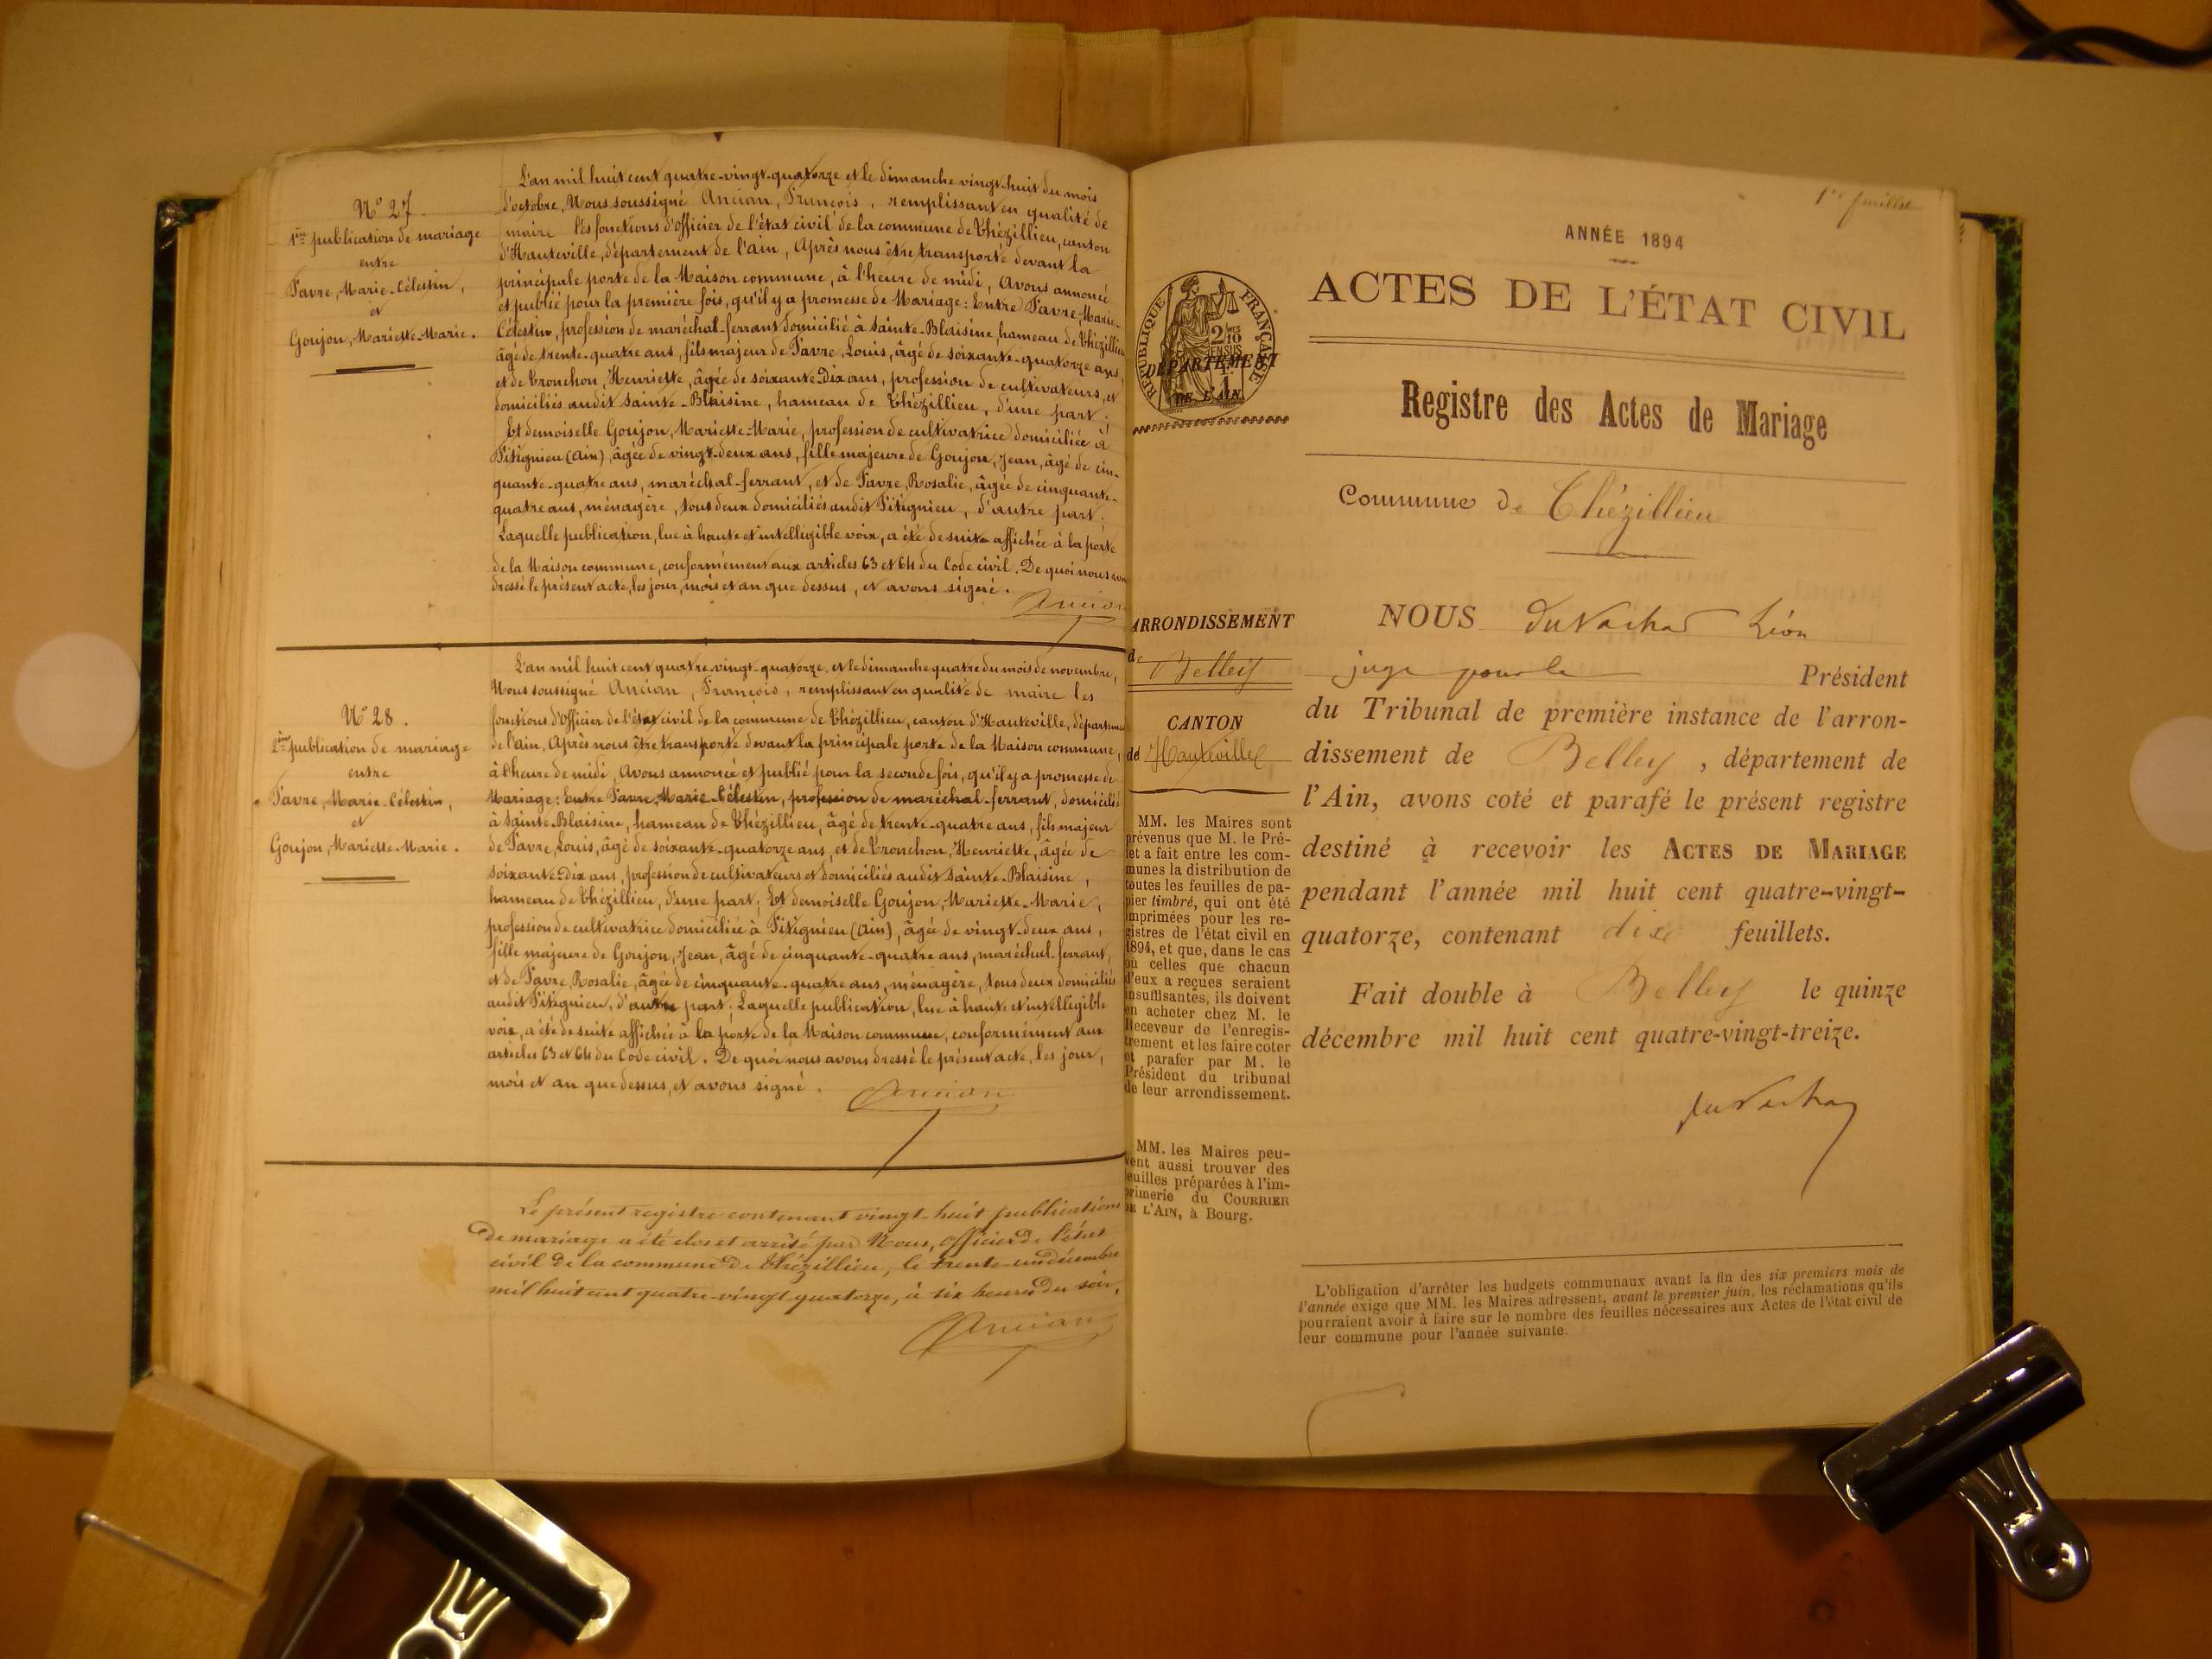 N° 27.
1ère publication de mariage
entre
Favre, Marie-Célestin,
et
Goujon, Mariette-Marie.
L'an mil huit cent quatre-vingt-quatorze et le dimanche vingt-huit du mois
d'octobre, Nous soussigné Ancian, François, remplissant en qualité de
maire les fonctions d'officier de l'état civil de la commune de Thézillieu, canton
d'Hauteville, département de l'Ain, Après nous être transporté devant la
principale porte de la Maison commune, à l'heure de midi, Avons annoncé
et publié pour la première fois, qu'il y a promesse de Mariage: Entre Favre, Marie-
Célestin, profession de maréchal-ferrant domicilié à Sainte-Blaisine hameau de Thézillieu
âgé de trente-quatre ans, fils majeur de Favre, Louis, âgé de soixante-quatorze ans,
et de Tronchon, Henriette, âgée de soixante-Dix ans, profession de cultivateurs, et
domiciliés audit Sainte-Blaisine, hameau de Thézillieu, d'une part.
Et demoiselle Goujon, Mariette-Marie, profession de cultivatrice domiciliée à
Fitignieu (Ain), âgée de vingt-deux ans, fille majeure de Goujon, Jean, âgé de cin-
quante-quatre ans, maréchal-ferrant, et de Favre, Rosalie, âgée de cinquante-
quatre ans, ménagère, tous deux domiciliés audit Fitignieu, d'autre part.
Laquelle publication, lue à haute et intelligible voix, a été de suite affichée à la porte
de la Maison commune, conformément aux articles 63 et 64 du Code civil. De quoi nous
dressé le présent acte, les jour, mois et an que dessus, et avons signé.
Ancian
N° 28.
2ème publication de mariage
entre
Favre, Marie-Célestin,
et
Goujon, Mariette-Marie.
L'an mil huit cent quatre-vingt-quatorze, et le dimanche quatre du mois de novembre,
Nous soussigné Ancian, François, remplissant en qualité de maire les
fonctions d'officier de l'état civil de la commune de Thézillieu, canton d'Hauteville, départeme
de l'Ain, Après nous être transporté devant la principale porte de la Maison commune,
à l'heure de midi, Avons annoncé et publié pour la seconde fois, qu'il y a promesse de
Mariage: Entre Favre, Marie-Célestin, profession de maréchal-ferrant, domicilié
à Sainte-Blaisine, hameau de Thézillieu, âgé de trente-quatre ans, fils majeur
de Favre, Louis, âgé de soixante-quatorze ans, et de Tronchon, Henriette, âgée de
soixante-Dix ans, profession de cultivateurs et domiciliés audit Sainte-Blaisine,
hameau de Thézillieu, d'une part; Et demoiselle Goujon, Mariette-Marie,
profession de cultivatrice domiciliée à Fitignieu (Ain), âgée de vingt-deux ans,
fille majeure de Goujon, Jean, âgé de cinquante-quatre ans, maréchal-ferrant,
et de Favre, Rosalie, âgée de cinquante-quatre ans, ménagère, tous deux domiciliés
audit Fitignieu, d'autre part; Laquelle publication, lue à haute et intelligible
voix, a été de suite affichée à la porte de la Maison commune, conformément aux
articles 63 et 64 du Code civil. De quoi nous avons dressé le présent acte, les jour,
mois et an que dessus, et avons signé.
Ancian
Le présent registre contenant vingt-huit publications
de mariage a été clos et arrêté par Nous, Officier de l'état
civil de la commune de Thézillieu, le trente-un décembre
mil huit cent quatre-vingt-quatorze, à six heures du soir.
Ancian
RÉPUBLIQUE FRANÇAISE
2/10 EN SUS
1F
DÉPARTEMENT
DE L'AIN
ARRONDISSEMENT
de
Belley
CANTON
de Hauteville
MM. les Maires sont
prévenus que M. le Pré-
fet a fait entre les com-
munes la distribution de
toutes les feuilles de pa-
pier timbré, qui ont été
imprimées pour les re-
gistres de l'état civil en
1894, et que, dans le cas
où celles que chacun
d'eux a reçues seraient
insuffisantes, ils doivent
en acheter chez M. le
Receveur de l'enregis-
trement et les faire coter
et parafer par M. le
Président du tribunal
de leur arrondissement.
MM. les Maires peu-
vent aussi trouver des
feuilles préparées à l'im-
primerie du COURRIER
DE L'AIN, à Bourg.
1er feuillet
ANNÉE 1894
ACTES DE L'ÉTAT CIVIL
Registre des Actes de Mariage
Commune de Thézillieu
NOUS Léon
juge pour le Président
du Tribunal de première instance de l'arron-
dissement de Belley, département de
l'Ain, avons coté et parafé le présent registre
destiné à recevoir les ACTES DE MARIAGE
pendant l'année mil huit cent quatre-vingt-
quatorze, contenant dix feuillets.
Fait double à Belley le quinze
décembre mil huit cent quatre-vingt-treize.
L'obligation d'arrêter les budgets communaux avant la fin des six premiers mois de
l'année exige que MM. les Maires adressent, avant le premier juin, les réclamations qu'ils
pourraient avoir à faire sur le nombre des feuilles nécessaires aux Actes de l'état civil de
leur commune pour l'année suivante.